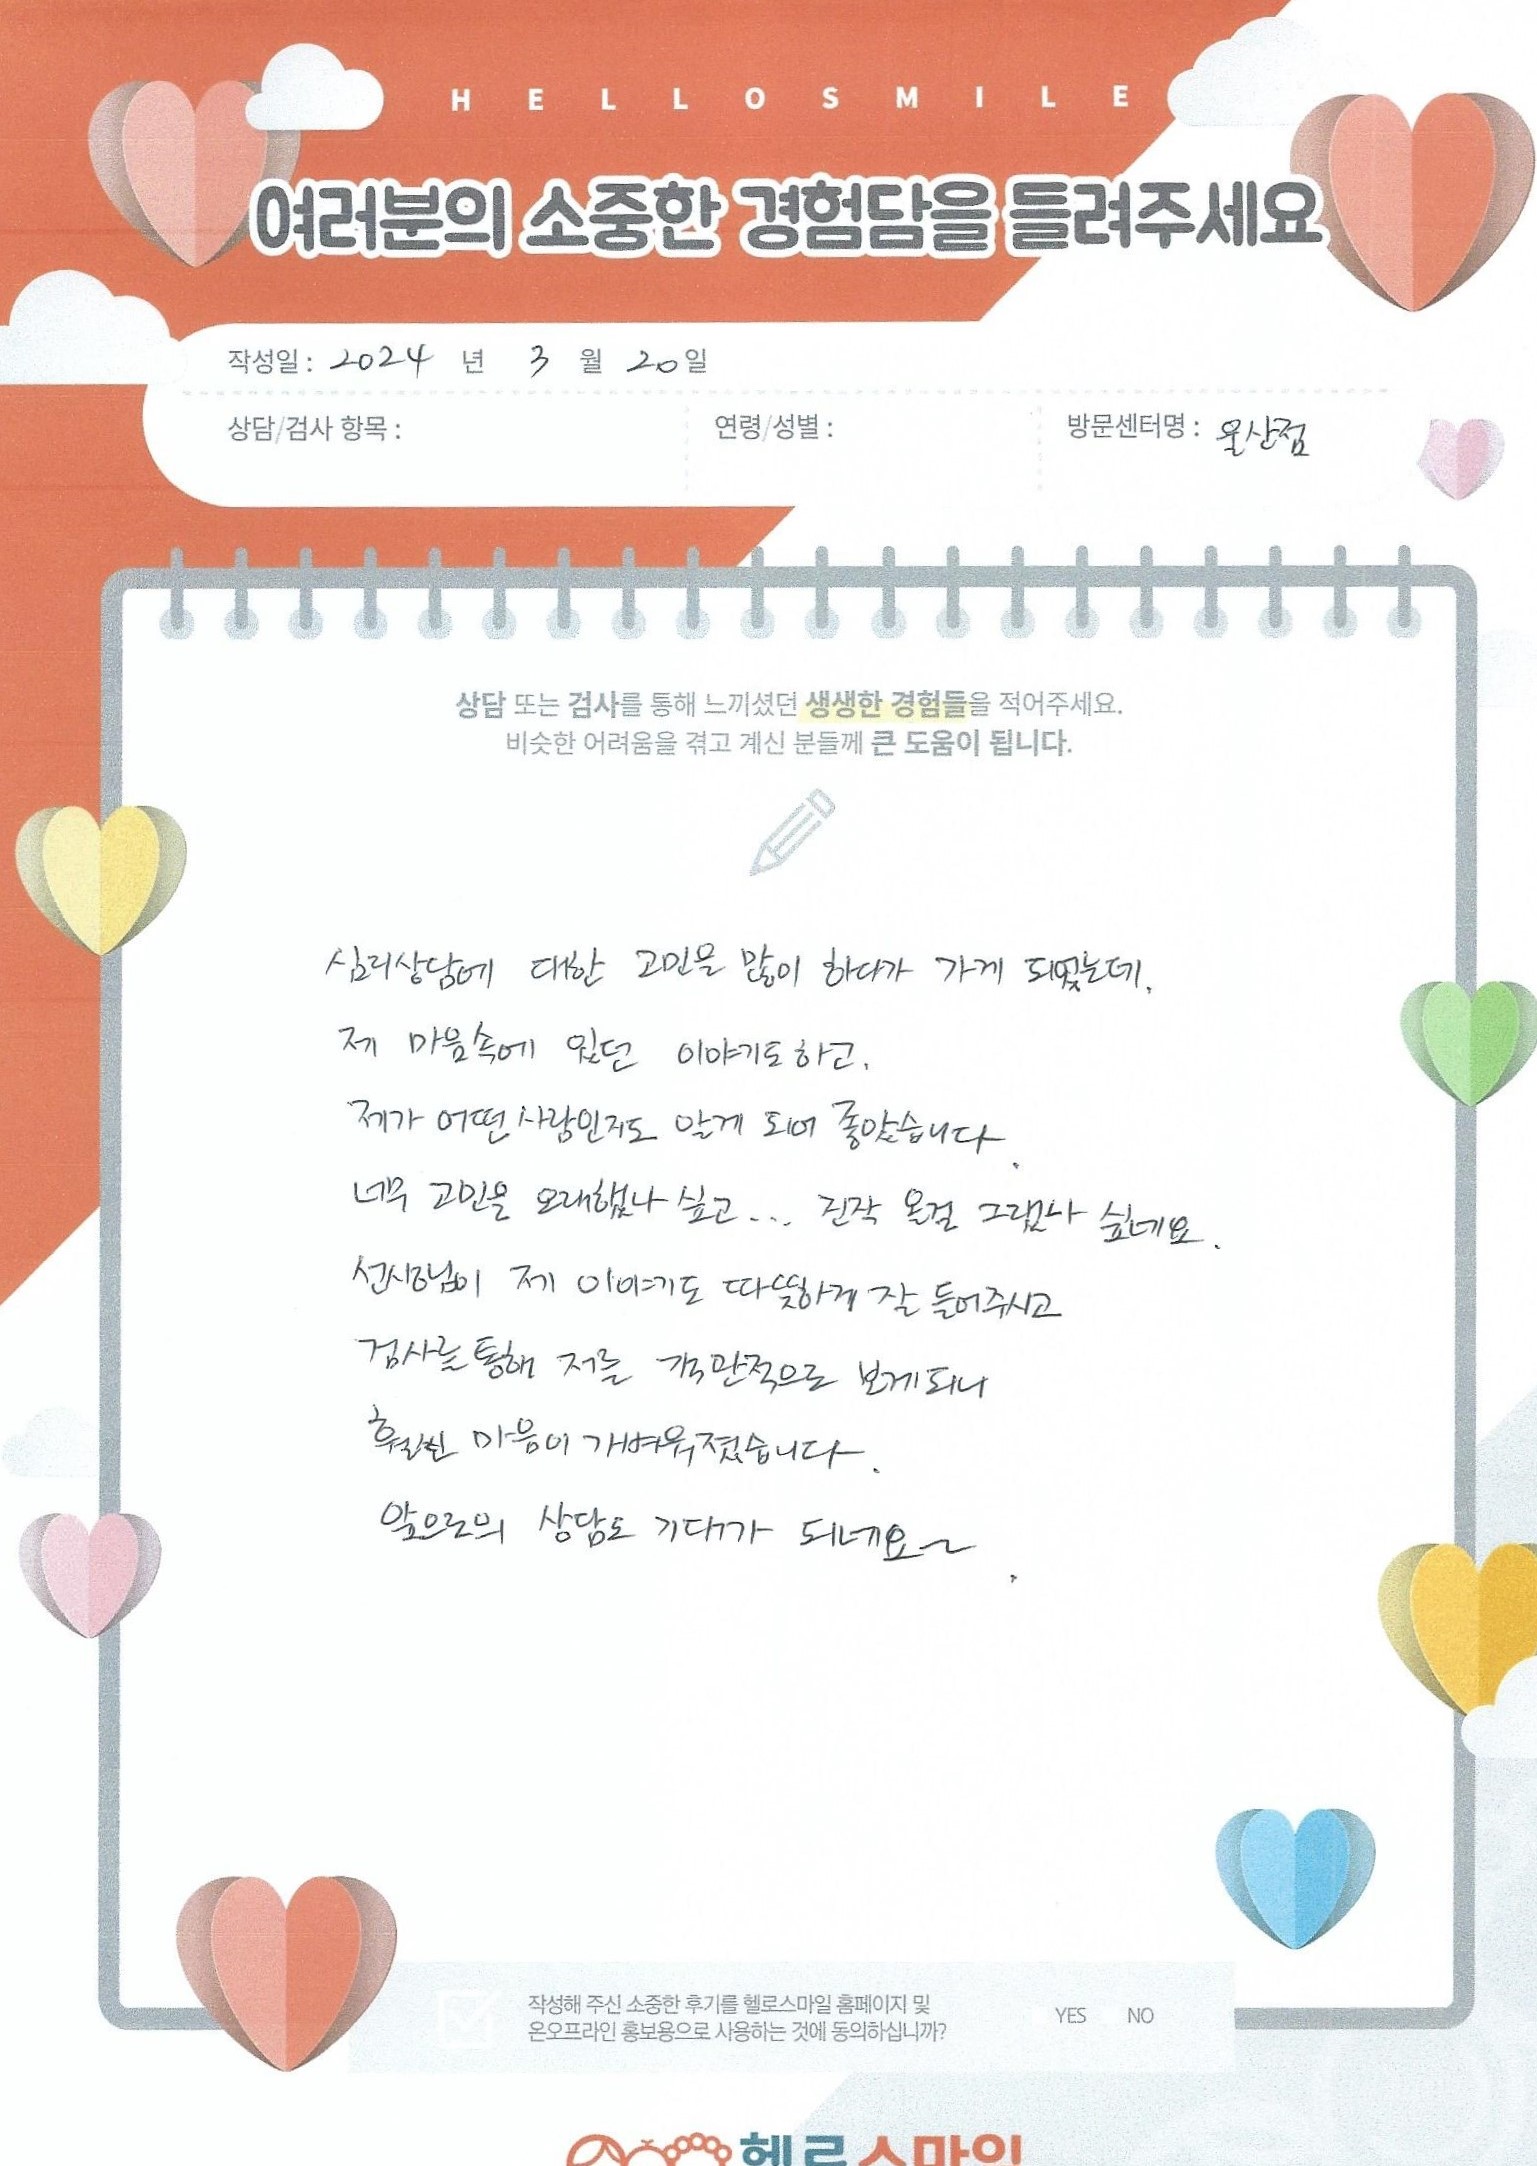 HELLOSMILE
여러분의 소중한 경험담을 들려주세요
작성일 : 2024 년 3 월 20 일
상담/검사 항목 : 연령/성별 : 방문센터명 : 울산점
상담 또는 검사를 통해 느끼셨던 생생한 경험들을 적어주세요.
비슷한 어려움을 겪고 계신 분들께 큰 도움이 됩니다.
심리상담에 대한 고민을 많이 하다가 가게 되었는데,
제 마음속에 있던 이야기도 하고,
제가 어떤 사람인지도 알게 되어 좋았습니다.
너무 고민을 오래했나 싶고... 진작 올걸 그랬나 싶네요.
선생님이 제 이야기도 따뜻하게 잘 들어주시고
검사를 통해 저를 객관적으로 보게되니
훨씬 마음이 가벼워졌습니다.
앞으로의 상담도 기대가 되네요~.
작성해 주신 소중한 후기를 헬로스마일 홈페이지 및
온오프라인 홍보용으로 사용하는 것에 동의하십니까? YES NO
헬로스마일